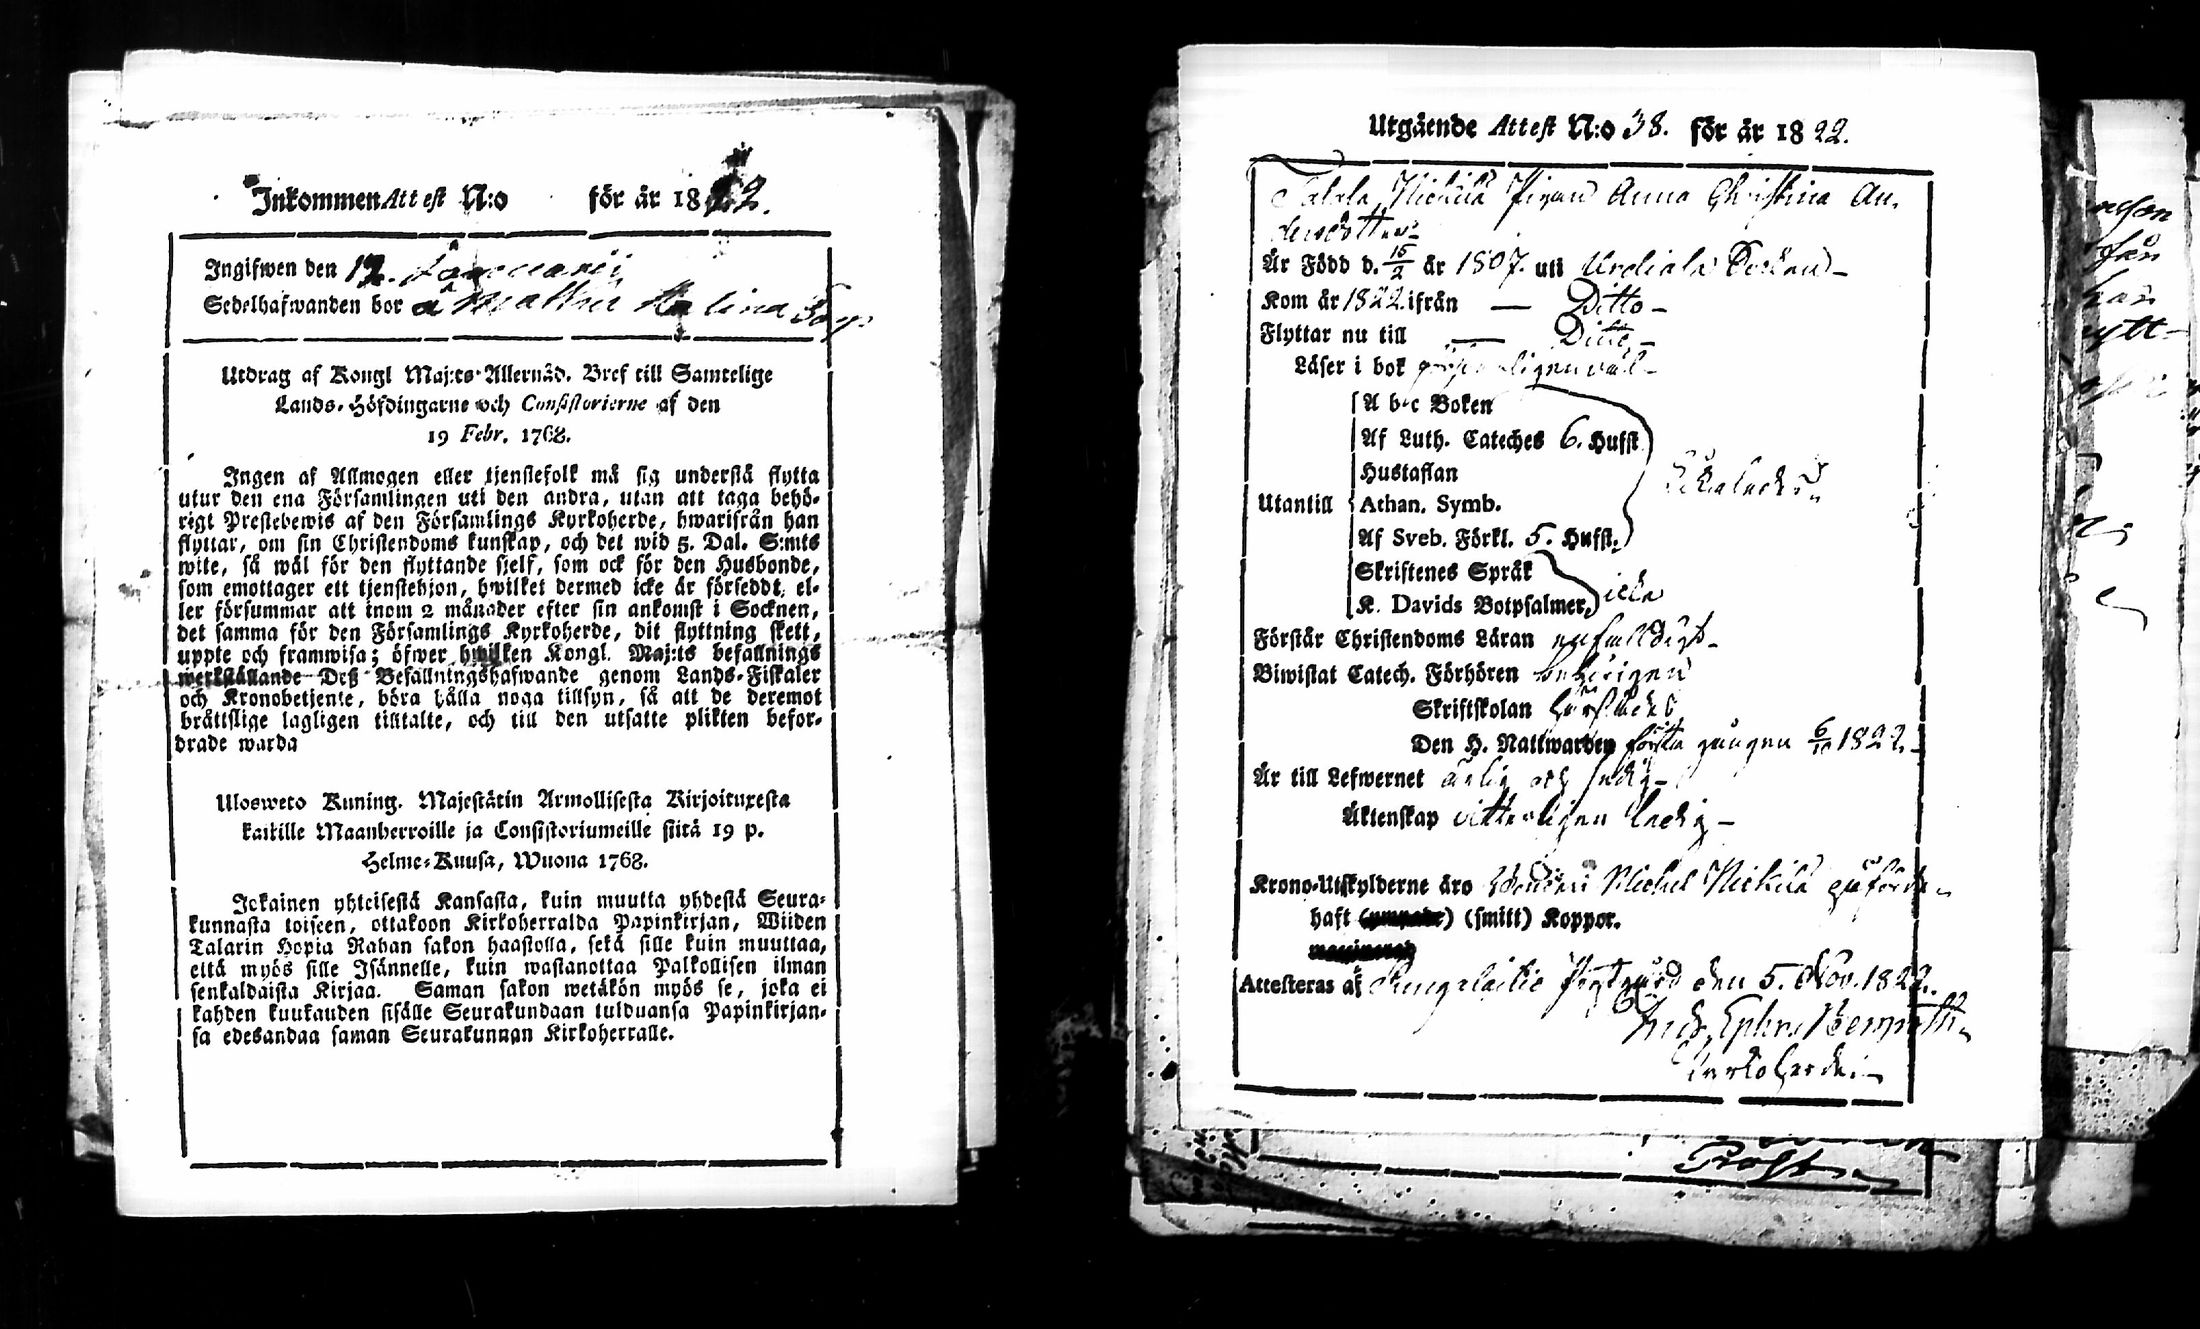 Inkommen Attest N:o för år 1822.
Ingifwen den 12. Januarii
Sedelhafwanden bor å Torp
Utdrag af Kongl Maj:ts Allernåd. Bref till Samtelige
Lands-Höfdingarne och Consistorierne af den
19 Febr. 1768.
Ingen af Allmogen eller tjenstefolk må sig understå flytta
utur den ena Församlingen uti den andra, utan att taga behö-
rigt Prestebewis af den Församlings Kyrkoherde, hwarifrån han
flyttar, om sin Christendoms kunskap, och det wid 5. Dal. S:mts
wite, så wäl för den flyttande sjelf, som ock för den Husbonde,
som emottager ett tjenstehjon, hwilket dermed icke är försedt, el-
ler försummar att inom 2 månader efter sin ankomst i Socknen,
det samma för den Församlings Kyrkoherde, dit flyttning skett,
uppte och framwisa; öfwer hwilken Kongl. Maj:ts befallnings
werkställande Deß Befallningshafwande genom Lands-Fiskaler
och Kronobetjente, böra hålla noga tillsyn, så att de deremot
bråttslige lagligen tilltalte, och till den utsatte plikten befor-
drade warda
Ulosweto Kuning. Majestätin Armollisesta Kirjoituxesta
kaikille Maanherroille ja Consistoriumeille siitä 19 p.
Helme-Kuusa, Wuona 1768.
Jokainen yhteisestä Kansasta, kuin muutta yhdestä Seura-
kunnasta toiseen, ottakoon Kirkoherralda Papinkirjan, Wiiden
Talarin Hopia Rahan sakon haastolla, sekä sille kuin muuttaa,
että myös sille Isännelle, kuin wastanottaa Palkollisen ilman
senkaldaista Kirjaa. Saman sakon wetäkön myös se, joka ei
kahden kuukauden sisälle Seurakundaan tulduansa Papinkirjan-
sa edesandaa saman Seurakunnan Kirkoherralle.
Utgående Attest N:o 38. för år 1822.
Nickilä Pigan Anna Christina An-
dersdotter
Är Född d. 15/2 år 1807. uti Urdiala Socken
Kom år 1822 ifrån — Ditto —
Flyttar nu till — Ditto —
Läser i bok wäl —
A b-c Boken
Af Luth. Cateches 6. Hufst
Hustaflan
Utantill Athan. Symb.
Af Sveb. Förkl. 5. Hufst.
Skriftenes Språk
K. Davids Botpsalmer, icke
Förstår Christendoms Läran enfalldigt —
Biwistat Catech. Förhören behörigen
Skriftskolan
Den H. Nattwarden första gången 6/10 1822.
Är till Lefwernet ärlig och
Äktenskap witterligen ledig —
Krono-Utskylderne äro Michel Nickilä
haft (smitt) Koppor.
Attesteras af Prestgård den 5. Nov. 1822.
And. Ephr.
Kyrkoherde
Prost